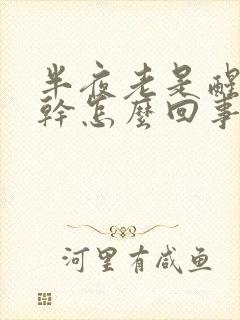 半夜老是醒
幹怎麼回事
河里有咸鱼